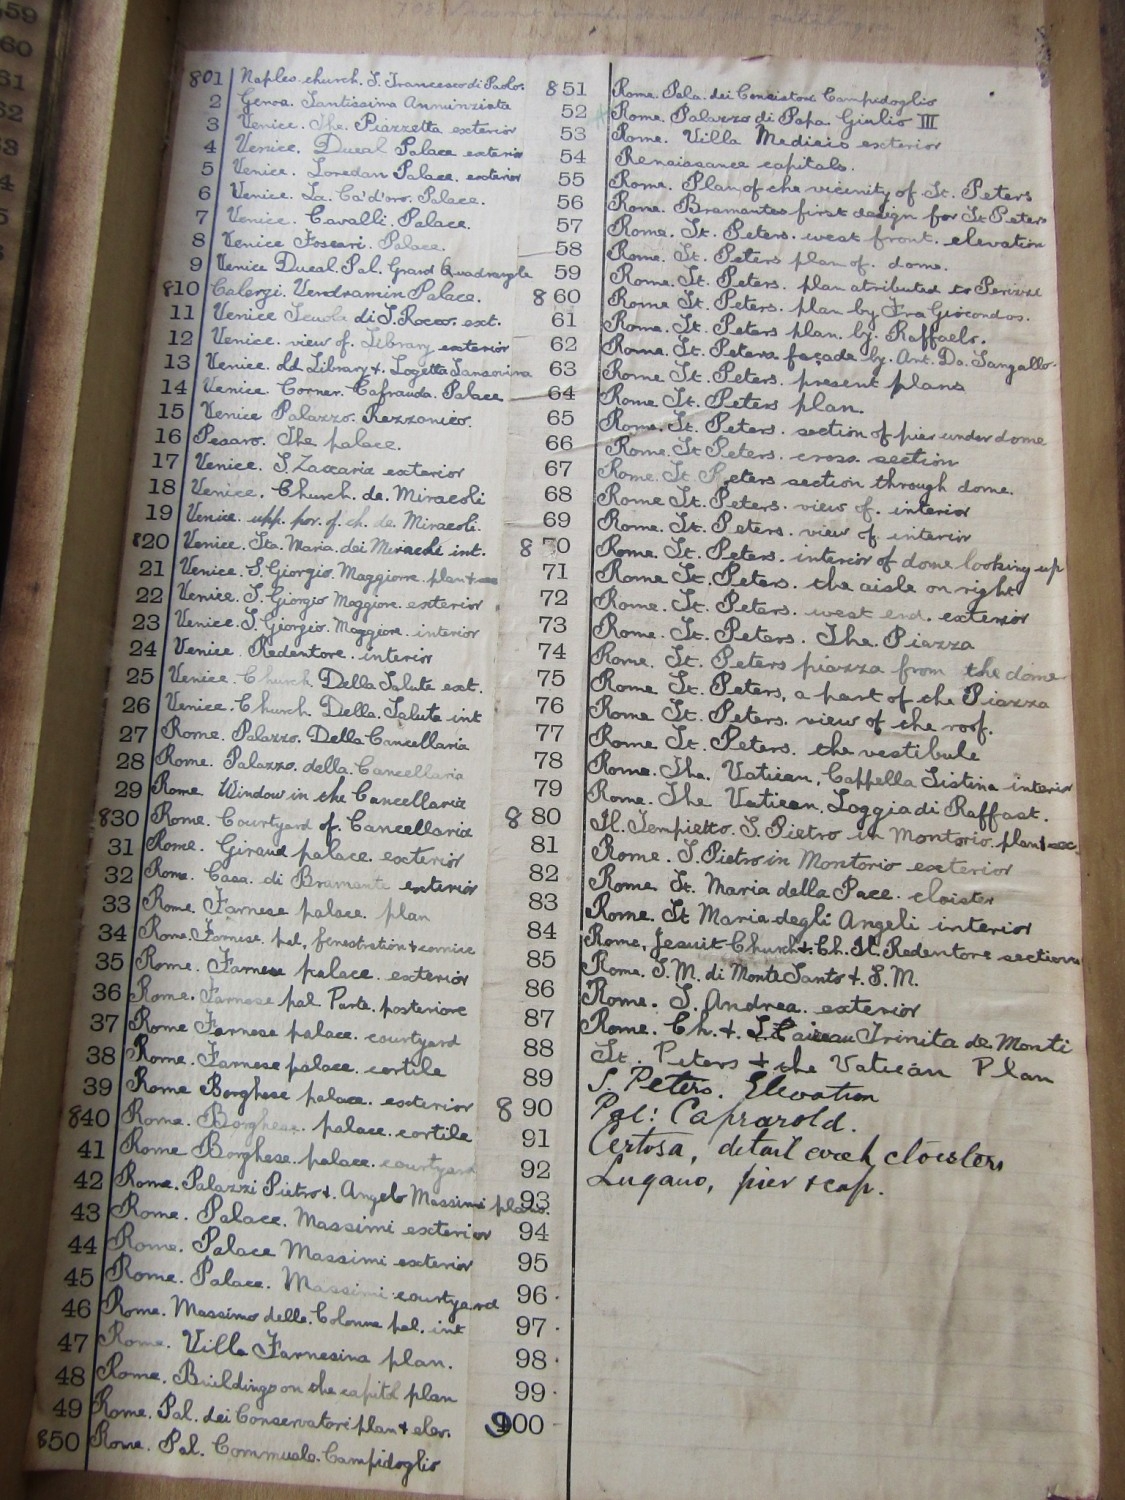 801 Naples. church. S. Francesco di Paolo.
2 Genoa. Santissima Annunziata
3 Venice. The. Piazzetta exterior
4 Venice. Ducal Palace exterior
5 Venice. Loredan Palace. exterior
6 Venice. La. Ca'd'oro. Palace.
7 Venice. Cavalli. Palace.
8 Venice Foscari. Palace.
9 Venice Ducal. Pal. Grand Quadrangle
810 Calergi. Vendramin Palace.
11 Venice Scuola di S. Rocco. ext.
12 Venice. view of. Library exterior
13 Venice. Old Library +. Logetta Sansovina
14 Venice. Corner. Palace
15 Venice Palazzo. Rezzonico.
16 Pesaro. The palace.
17 Venice. S. Zaccaria exterior
18 Venice. Church. de. Miracoli
19 Venice. upp. por. of. ch. de. Miracoli.
820 Venice. Sta. Maria. dei Miracoli int.
21 Venice. S. Giorgio. Maggiorre. plan +
22 Venice. S. Giorgio Maggiore. exterior
23 Venice. S. Giorgio. Maggiore. interior
24 Venice. Redentore. interior
25 Venice. Church. Della Salute ext.
26 Venice. Church. Della. Salute int
27 Rome. Palazzo. Della Cancellaria
28 Rome. Palazzo. della. Cancellaria
29 Rome Window in the Cancellaria
830 Rome. Courtyard of. Cancellaria
31 Rome. Giraud palace. exterior
32 Rome. Casa. di Bramante exterior
33 Rome. Farnese palace. plan
34 Rome. Farnese. pal, fenestration + cornice
35 Rome. Farnese palace. exterior
36 Rome. Farnese pal Parte. posteriore
37 Rome Farnese palace. courtyard
38 Rome. Farnese palace. cortile
39 Rome Borghese palace. exterior
840 Rome. Borghese. palace. cortile
41 Rome Borghese. palace. courtyard
42 Rome. Palazzi Pietro +. Angelo Massimi plans.
43 Rome. Palace. Massimi exterior
44 Rome. Palace Massimi exterior
45 Rome. Palace. Massimi courtyard
46 Rome. Massimo delle. Colonne pal. int
47 Rome. Villa Farnesina plan.
48 Rome. Buildings on the capitol plan
49 Rome. Pal. dei Conservatori plan + elev.
850 Rome. Pal. Commuale. Campidoglio
851 Rome. Pala. dei Campidoglio
52 Rome. Palazzo di Papa. Giulio III
53 Rome. Villa Medicis exterior
54 Renaissance capitals.
55 Rome. Plan of the vicinity of St. Peters
56 Rome. Bramantes first design for St Peters
57 Rome. St. Peters. west front. elevation
58 Rome. St. Peters plan of. dome.
59 Rome. St. Peters. plan atributed to Peruzzi
860 Rome St. Peters. plan by Fra Giocondos.
61 Rome. St. Peters plan. by. Raffaelo.
62 Rome. St. Peters façade by. Ant. Da. Sangallo.
63 Rome St. Peters. present plans
64 Rome St. Peters plan.
65 Rome. St. Peters. section of pier under dome
66 Rome. St Peters. cross section
67 Rome. St. Peters section through dome.
68 Rome St. Peters. view of. interior
69 Rome. St. Peters. view of interior
870 Rome. St. Peters. interior of dome looking up
71 Rome St. Peters. the aisle on right
72 Rome. St. Peters. west end. exterior
73 Rome. St. Peters. The. Piazza
74 Rome. St. Peters piazza from the dome
75 Rome St. Peters, a part of the Piazza
76 Rome St. Peters. view of the roof.
77 Rome St. Peters. the vestibule
78 Rome. The. Vatican. Cappella Sistina interior
79 Rome. The Vatican. Loggia di Raffast.
880 Il. Tempietto. S. Pietro in Montorio. plan + sec.
81 Rome. S. Pietro in Montorio exterior
82 Rome. St. Maria della Pace. cloister
83 Rome. St Maria degli Angeli interior
84 Rome, Jesuit Church +. Ch. Il. Redentore sections
85 Rome. S. M. di Monte Santo +. S. M.
86 Rome. S. Andrea. exterior
87 Rome. Ch. +. Trinita de. Monti
88 St. Peters + the Vatican Plan
89 S. Peters. Elevation
890 Pal: Caprarold.
91 Certosa, detail arch, cloisters
92 Lugano, pier + cap.
93
94
95
96
97
98
99
900
59
60
61
62